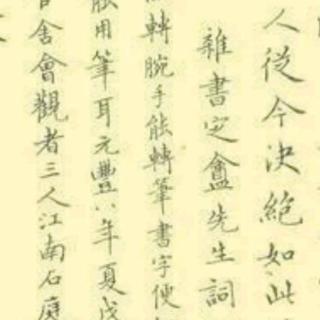 人從今決絕如此
雜書定盦先生詞
轉腕手能轉筆書字便
能用筆耳元豐八年夏戊
舍會觀者三人江南石庭